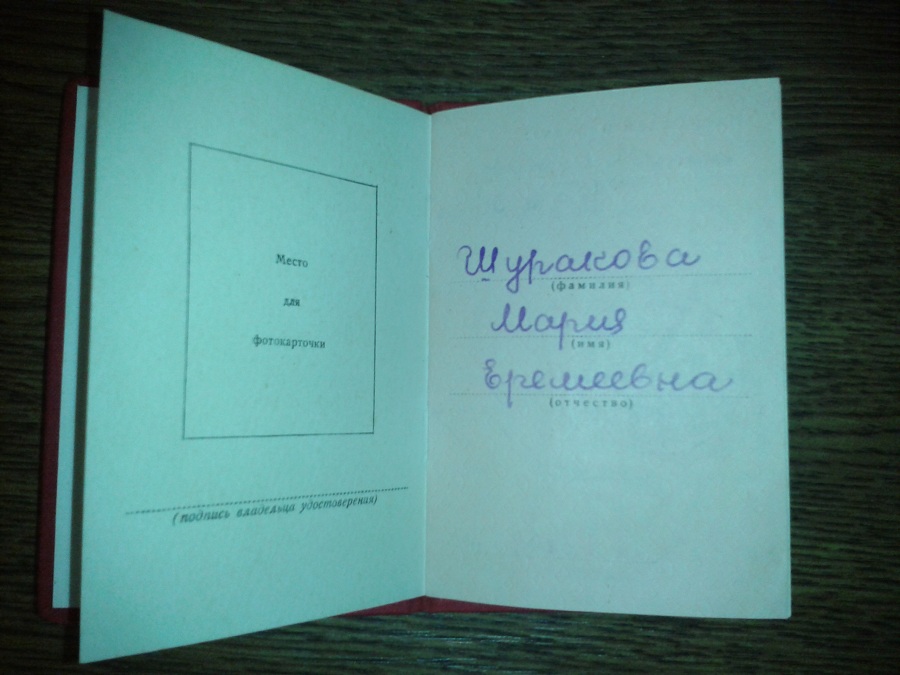 Место
для
фотокарточки
(подпись владельца удостоверения)
Шуракова
(фамилия)
Мария
(имя)
Еремеевна
(отчество)